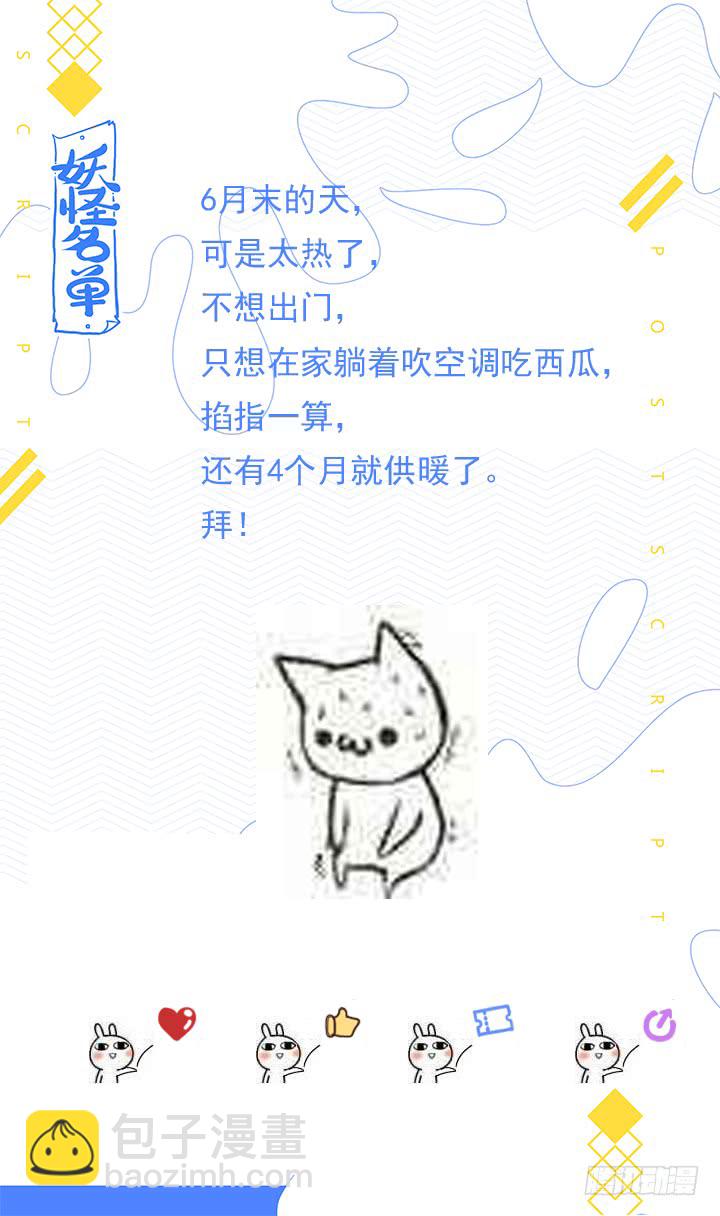 SCRIPT
妖怪名单
6月末的天，
可是太热了，
不想出门，
只想在家躺着吹空调吃西瓜，
掐指一算，
还有4个月就供暖了。
拜！
POSTSCRIPT
包子漫畫
baozimh.com
腾讯动漫